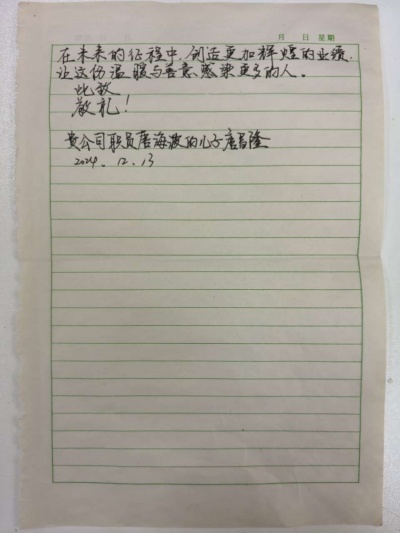 月 日 星期
在未来的征程中，创造更加辉煌的业绩，
让这份温暖与善意感染更多的人。
此致
敬礼！
贵公司职员唐海波的儿子唐昌隆
2024. 12. 13